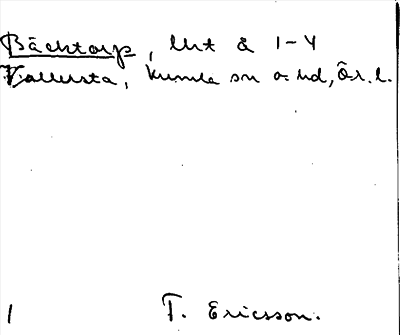 Bäcktorp, lht & 1-4
Vallersta, Kumla sn o. hd, Ör. l.
1 T. Ericsson.